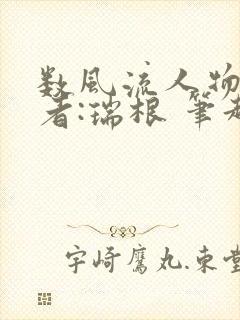 数風流人物
者:瑞根 筆
宇崎鷹丸.東